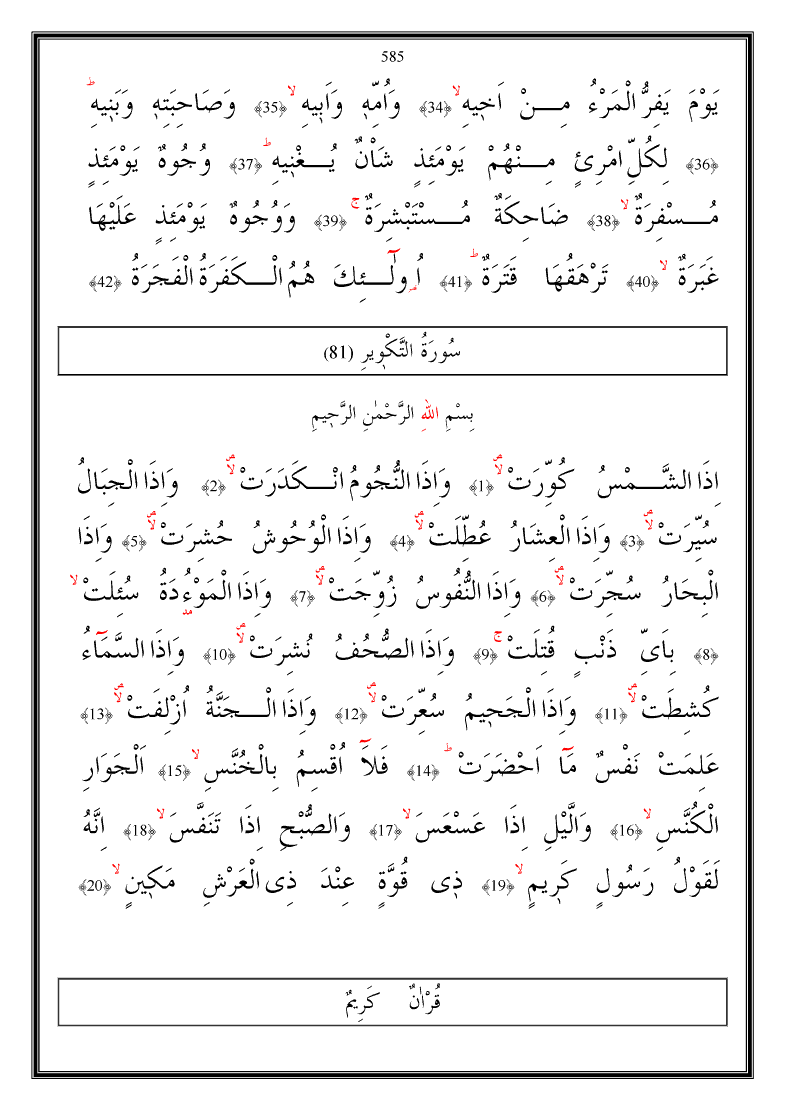 585
يَوْمَ يَفِرُّ الْمَرْءُ مِـــنْ اَخ۪يهِۙ ﴿34﴾ وَاُمِّه۪ وَاَب۪يهِۙ ﴿35﴾ وَصَاحِبَتِه۪ وَبَن۪يهِۜ
﴿36﴾ لِكُلِّ امْرِئٍ مِـــنْهُمْ يَوْمَئِذٍ شَاْنٌ يُـــغْن۪يهِۜ ﴿37﴾ وُجُوهٌ يَوْمَئِذٍ
مُـــسْفِرَةٌۙ ﴿38﴾ ضَاحِكَةٌ مُـــسْتَبْشِرَةٌۚ ﴿39﴾ وَوُجُوهٌ يَوْمَئِذٍ عَلَيْهَا
غَبَرَةٌۙ ﴿40﴾ تَرْهَقُهَا قَتَرَةٌۜ ﴿41﴾ اُو۬لٰٓـــئِكَ هُمُ الْـــكَفَرَةُ الْفَجَرَةُ ﴿42﴾
سُورَةُ التَّكْو۪يرِ (81)
بِسْمِ اللهِ الرَّحْمٰنِ الرَّح۪يمِ
اِذَا الشَّـــمْسُ كُوِّرَتْۙۖ ﴿1﴾ وَاِذَا النُّجُومُ انْـــكَدَرَتْۙۖ ﴿2﴾ وَاِذَا الْجِبَالُ
سُيِّرَتْۙۖ ﴿3﴾ وَاِذَا الْعِشَارُ عُطِّلَتْۙۖ ﴿4﴾ وَاِذَا الْوُحُوشُ حُشِرَتْۙۖ ﴿5﴾ وَاِذَا
الْبِحَارُ سُجِّرَتْۙۖ ﴿6﴾ وَاِذَا النُّفُوسُ زُوِّجَتْۙۖ ﴿7﴾ وَاِذَا الْمَوْءُ۫دَةُ سُئِلَتْۙ
﴿8﴾ بِاَيِّ ذَنْبٍ قُتِلَتْۚ ﴿9﴾ وَاِذَا الصُّحُفُ نُشِرَتْۙۖ ﴿10﴾ وَاِذَا السَّمَٓاءُ
كُشِطَتْۙۖ ﴿11﴾ وَاِذَا الْجَح۪يمُ سُعِّرَتْۙۖ ﴿12﴾ وَاِذَا الْـــجَنَّةُ اُزْلِفَتْۙۖ ﴿13﴾
عَلِمَتْ نَفْسٌ مَٓا اَحْضَرَتْۜ ﴿14﴾ فَلَٓا اُقْسِمُ بِالْخُنَّسِۙ ﴿15﴾ اَلْجَوَارِ
الْكُنَّسِۙ ﴿16﴾ وَالَّيْلِ اِذَا عَسْعَسَۙ ﴿17﴾ وَالصُّبْحِ اِذَا تَنَفَّسَۙ ﴿18﴾ اِنَّهُ
لَقَوْلُ رَسُولٍ كَر۪يمٍۙ ﴿19﴾ ذ۪ى قُوَّةٍ عِنْدَ ذِى الْعَرْشِ مَك۪ينٍۙ ﴿20﴾
قُرْاٰنٌ كَرِيمٌ